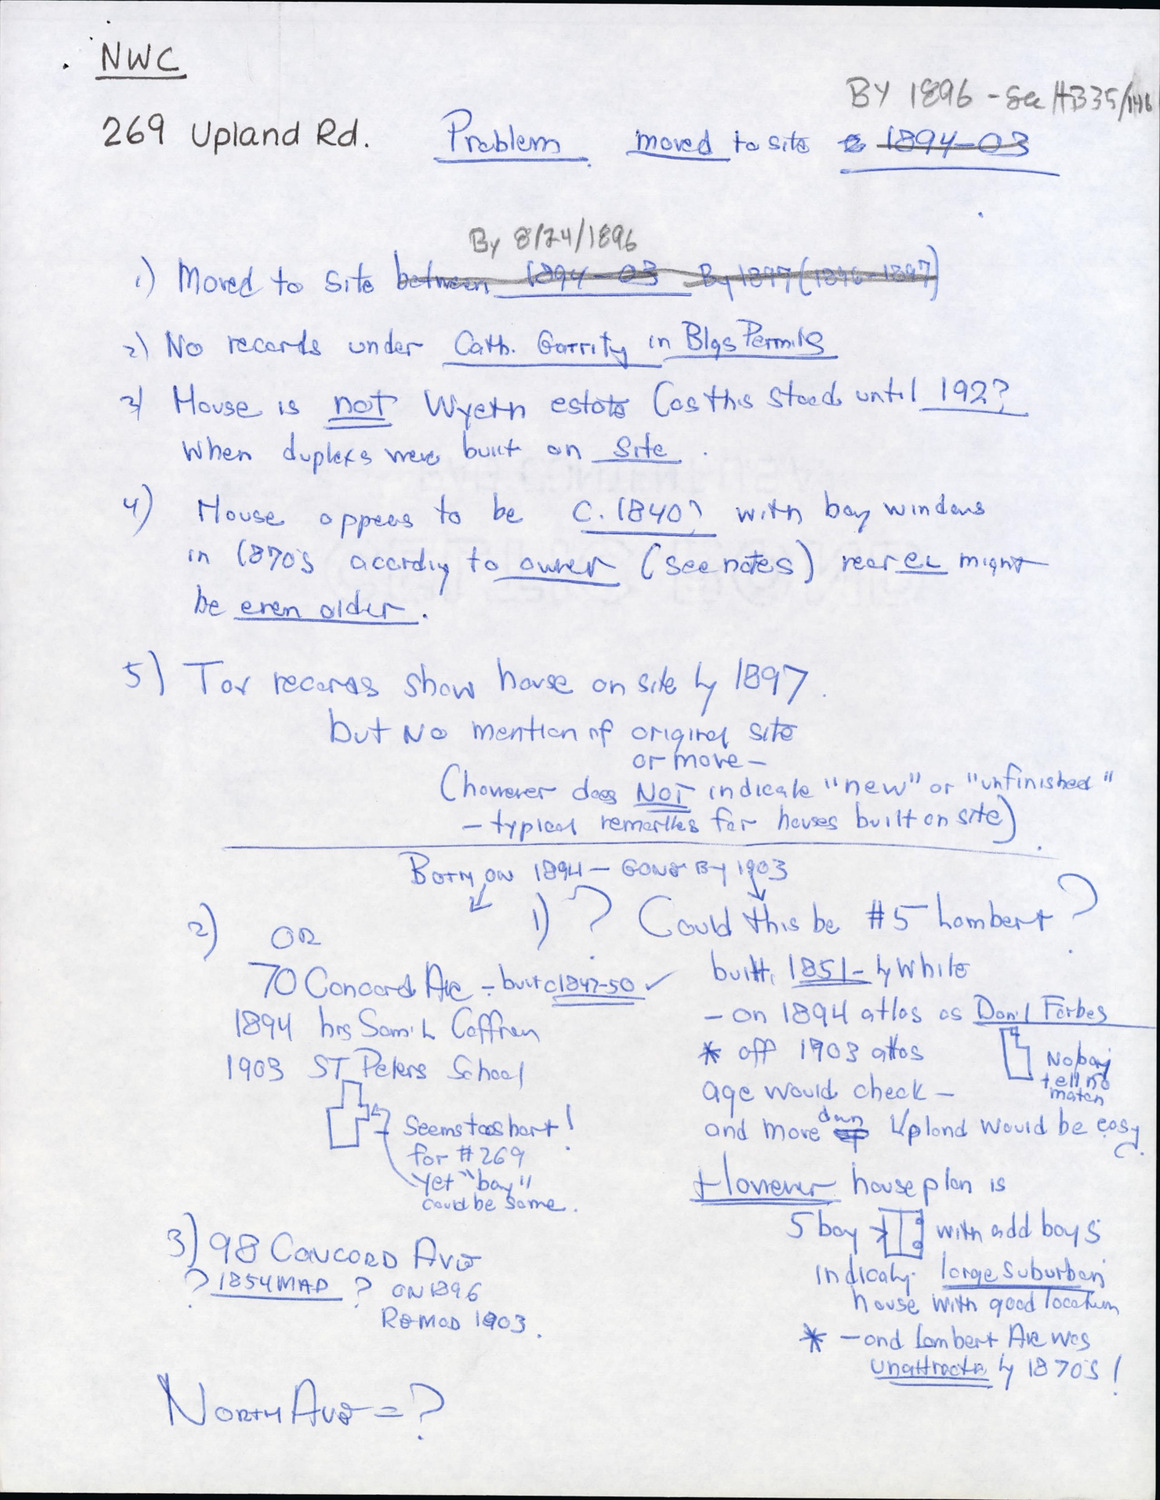 NWC
BY 1896 - See HB335/146
269 Upland Rd. Problem moved to site 1894-03
By 8/24/1896
1) Moved to Site between 1894-03 By 1897 (1896-1897)
2) No records under Cath. Garrity in Blgs Permits
3) House is not Wyeth estate (as this stood until 192?
When duplexs were built on Site.
4) House appears to be C. 1840? with bay windows
in 1870's accordig to owner (see notes) rear EL might
be even older.
5) Tax records show house on site by 1897.
but No mention of original site
or move -
(however does NOT indicate "new" or "unfinished"
- typical remarks for houses built on site)
Both on 1894 - Gone By 1903
2) OR
1) ? Could this be #5 Lambert?
70 Concord Ave - built c1847-50 ✓
1894 hrs Sam'l Coffren
1903 ST Peters School
Seems too short!
for #269
Yet "bay"
could be same.
built, 1851 - by White
- on 1894 atlas as Dan'l Forbes
* off 1903 atlas
No bay
tell no
match
age would check -
and move down Upland would be easy
However house plan is
5 bay with add bays
indicatg. large suburban
house with good location
* - and Lambert Ave was
unattractve by 1870's!
3) 98 Concord Ave
? 1854 MAP ? ON 1896
REMOD 1903.
North Ave = ?